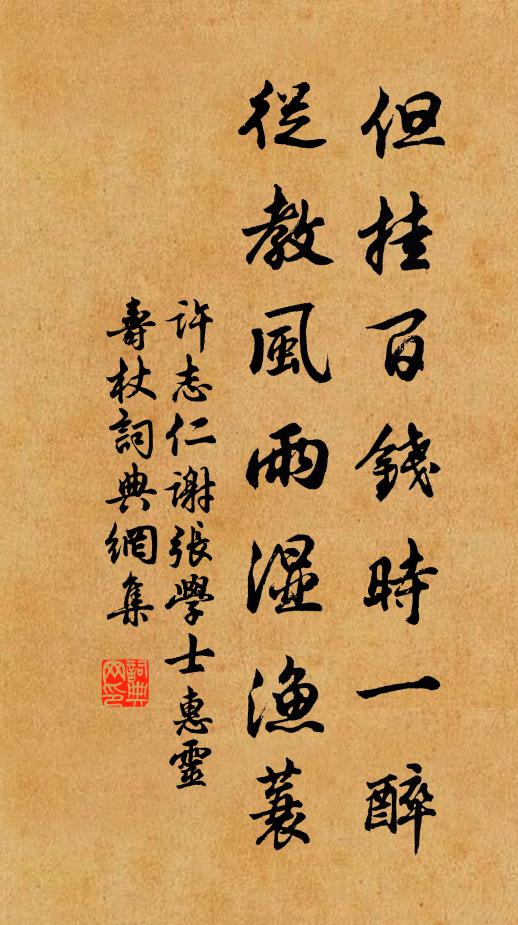 但挂百錢時一醉
從教風雨濕漁蓑
许志仁谢張學士惠靈
壽杖詞典網集
詞典
网印